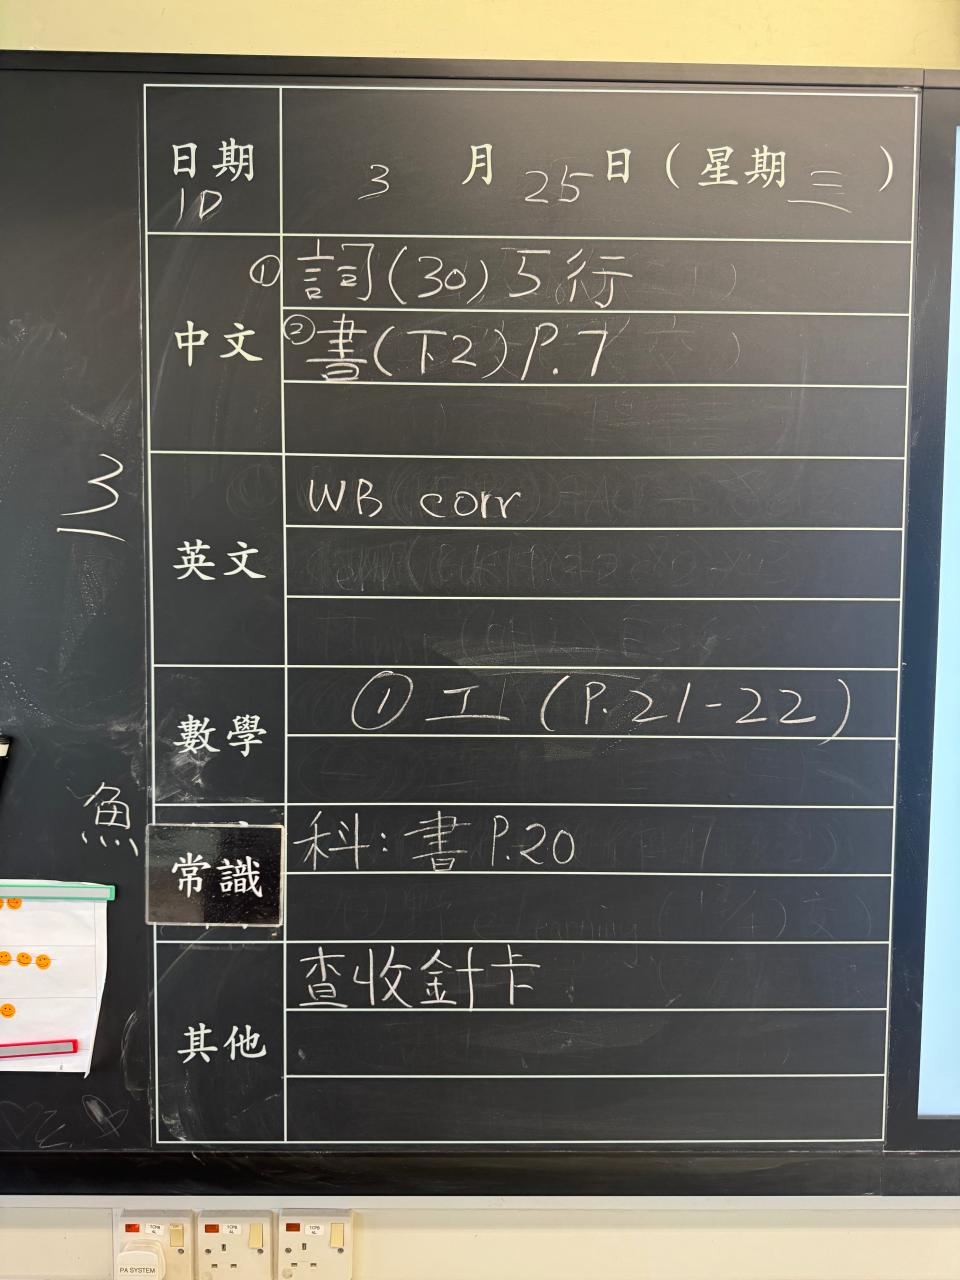 日期 3 月 25 日 (星期 三 )
1D
中文
① 詞(30) 5行
② 書(下2) P.7
英文
WB corr
數學
① 工 (P.21-22)
常識
科: 書 P.20
其他
查收針卡
3
魚
TCPB
TCPB
TCPB
PA SYSTEM